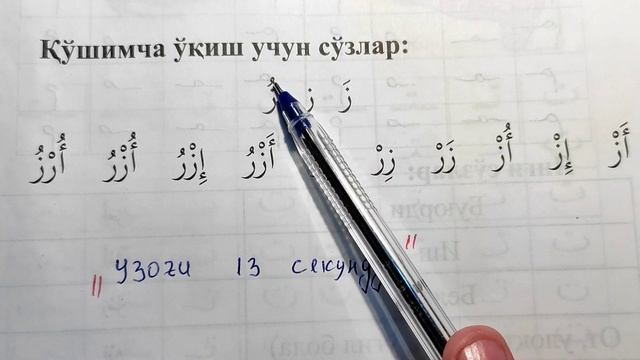 Қўшимча ўқиш учун сўзлар:
زَ زِ زُ
أَزْ إِزْ أُزْ زَرْ زِرْ أَزْرُ إِزْرُ أُزْرُ أُرْزُ
"узоғи 13 секунд"